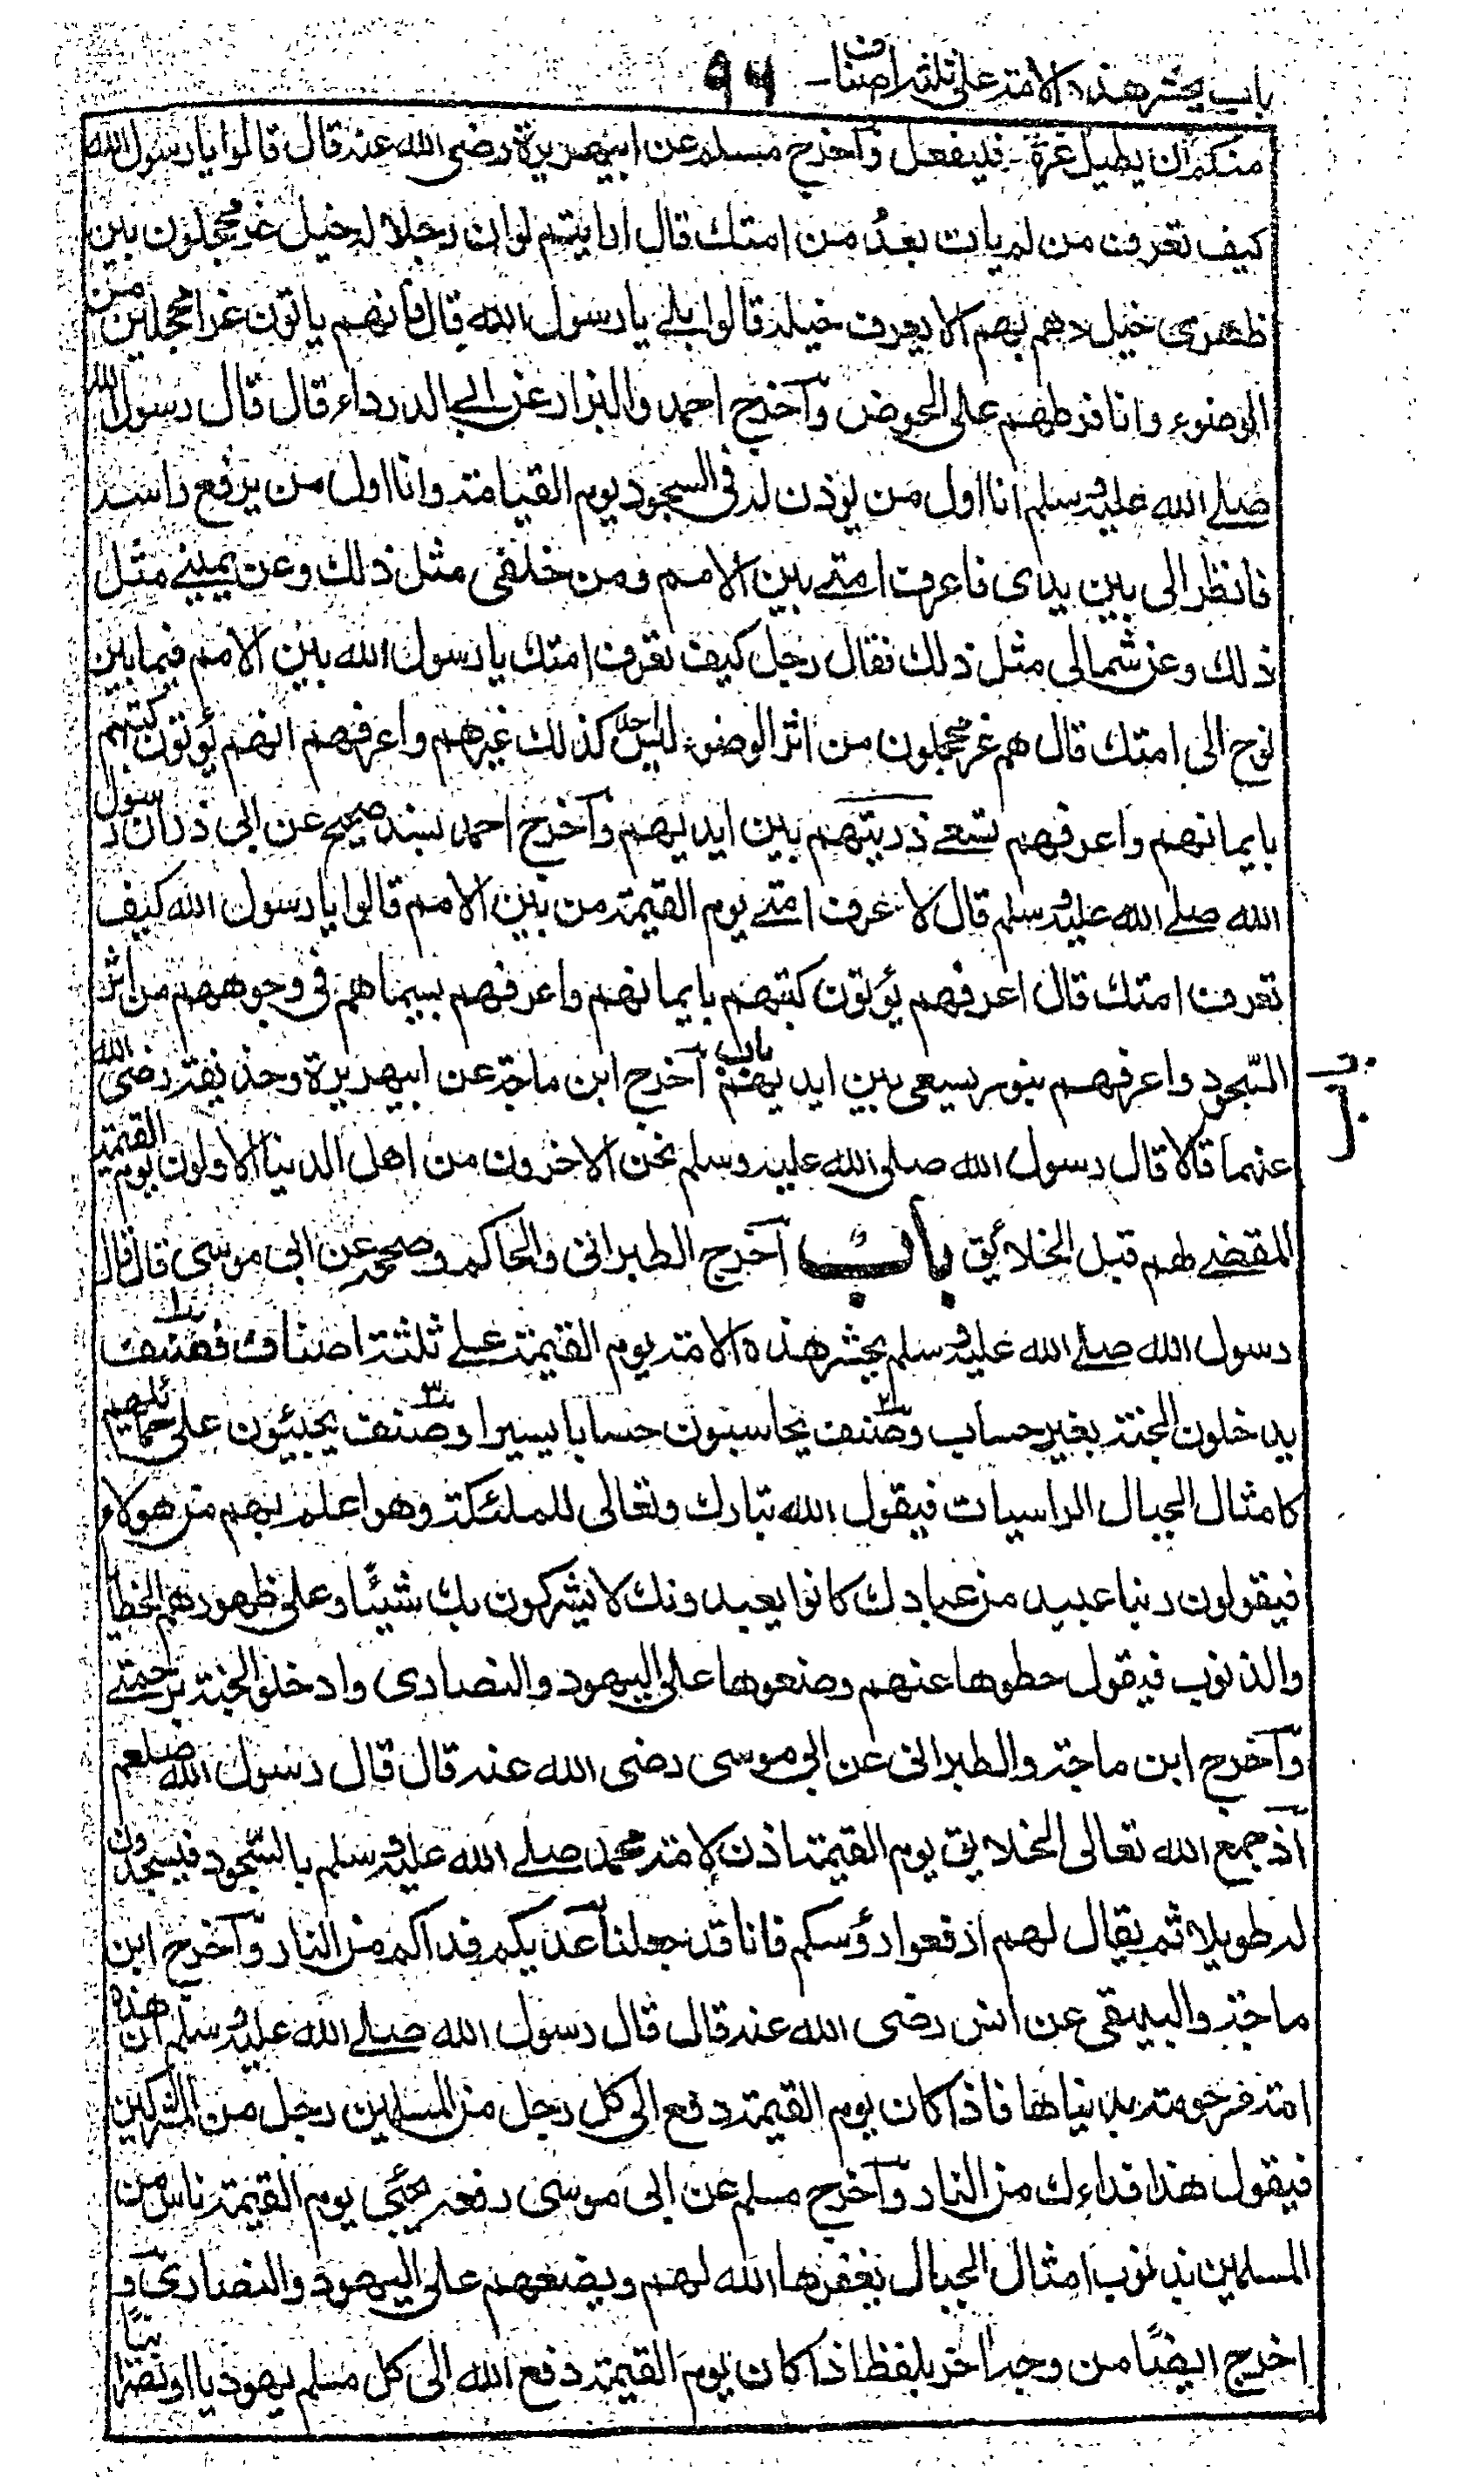 باب يحشر هذه الامة على ثلثة اصناف - ٩٦
منكم ان يطيل غرته فليفعل وآخرج مسلم عن ابيهريرة رضي الله عنه قال قالوا يا رسول الله
كيف تعرف من لم يات بعدُ من امتك قال ارايتم لو ان رجلا له خيل غر محجلون بين
ظهري خيل دهم بهم الا يعرف خيله قالوا بلے يا رسول الله قال فانهم ياتون غرا محجلين من
الوضوء وانا فرطهم على الحوض وآخرج احمد والبزار عن ابي الدرداء قال قال رسول الله
صلے الله عليه وسلم انا اول من يوذن له في السجود يوم القيامة وانا اول من يرفع راسه
فانظر الى بين يدى فاعرف امتے بين الامم ومن خلفى مثل ذلك وعن يمينے مثل
ذلك وعن شمالى مثل ذلك فقال رجل كيف تعرف امتك يا رسول الله بين الامم فيما بين
نوح الى امتك قال هم غر محجلون من اثر الوضوء ليس احد كذلك غيرهم واعرفهم انهم يؤتون كتبهم
بايمانهم واعرفهم تسعے ذريتهم بين ايديهم وآخرج احمد بسند صحيح عن ابى ذر ان رسول
الله صلے الله عليه وسلم قال لاعرف امتے يوم القيمة من بين الامم قالوا يا رسول الله كيف
تعرف امتك قال اعرفهم يؤتون كتبهم بايمانهم واعرفهم بسيماهم فى وجوههم من اثر
السجود واعرفهم بنورهم يسعى بين ايديهم باب آخرج ابن ماجة عن ابيهريرة وحذيفة رضى الله
عنهما قالا قال رسول الله صلى الله عليه وسلم نحن الاخرون من اهل الدنيا الاولون يوم القيمة
المقضے لهم قبل الخلائق باب آخرج الطبرانى والحاكم وصححه عن ابى موسى قال قال
رسول الله صلے الله عليه وسلم يحشر هذه الامة يوم القيمة علے ثلثة اصناف فصنف
يدخلون الجنة بغير حساب وصنف يحاسبون حسابا يسيرا وصنف يجيئون على حمائلهم
كامثال الجبال الراسيات فيقول الله تبارك وتعالى للملئكة وهو اعلم بهم من هولاء
فيقولون ربنا عبيد من عبادك كانوا يعبدونك لا يشركون بك شيئا وعلى ظهورهم الخطايا
والذنوب فيقول حطوها عنهم وضعوها على اليهود والنصارى وادخلوا الجنة برحمتے
وآخرج ابن ماجة والطبرانى عن ابى موسى رضى الله عنه قال قال رسول الله صلعم
آذ جمع الله تعالى الخلايق يوم القيمة اذن لامة محمد صلے الله عليه وسلم بالسجود فيسجدون
له طويلا ثم يقال لهم ارفعوا رؤسكم فانا قد جعلنا عدتكم فداكم من النار وآخرج ابن
ماجة والبيهقى عن انس رضى الله عنه قال قال رسول الله صلے الله عليه وسلم ان هذه
امة مرحومة فاذا كان يوم القيمة دفع الى كل رجل من المسلمين رجل من المشركين
فيقول هذا فداءك من النار وآخرج مسلم عن ابى موسى رفعه يجئى يوم القيمة ناس من
المسلمين بذنوب امثال الجبال يغفرها الله لهم ويضعهم على اليهود والنصارى و
اخرج ايضًا من وجه اخر بلفظ اذا كان يوم القيمة دفع الله الى كل مسلم يهوديا او نصرانيا